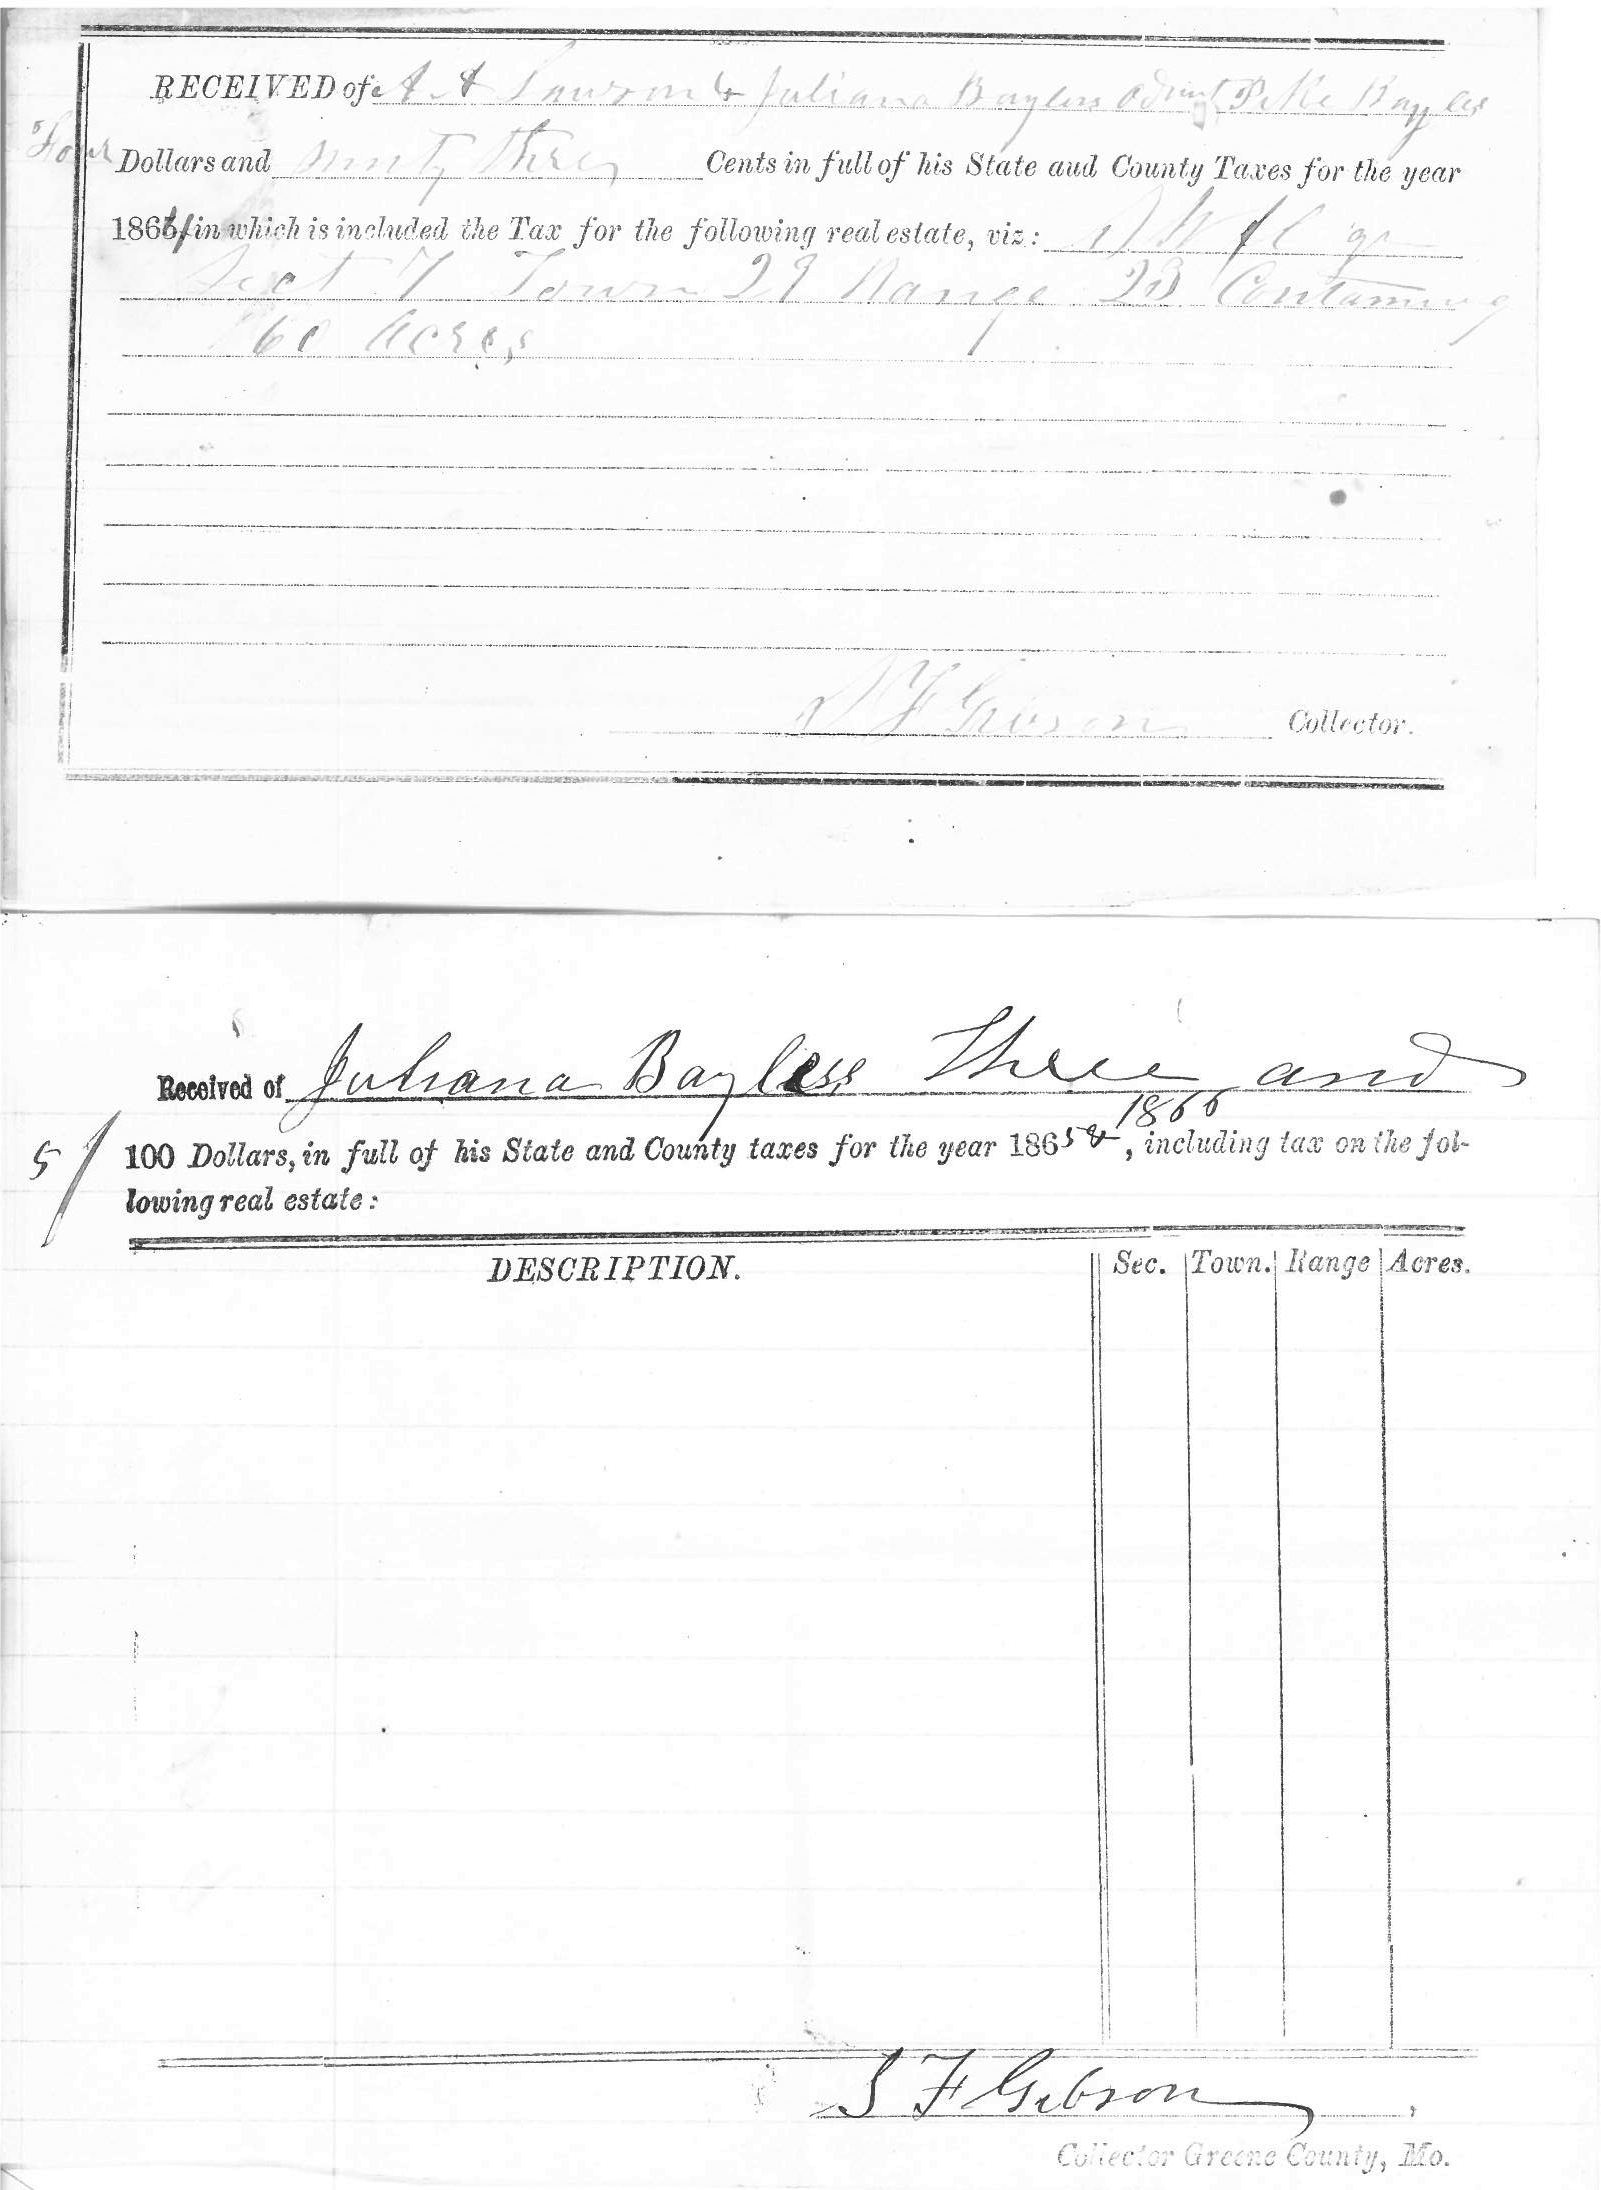 RECEIVED of A A Lawson & Juliana Bayless admt P Mc Bayles
Four Dollars and ninty three Cents in full of his State and County Taxes for the year
1866, in which is included the Tax for the following real estate, viz: S W fl qr
Sect 7 Town 29 Range 23 Containing
60 acres
S F Gibson Collector.
Received of Juliana Bayless Three and
51/100 Dollars, in full of his State and County taxes for the year 1865 & 1866, including tax on the fol-
lowing real estate:
DESCRIPTION. Sec. Town. Range Acres.
S F Gibson,
Collector Greene County, Mo.